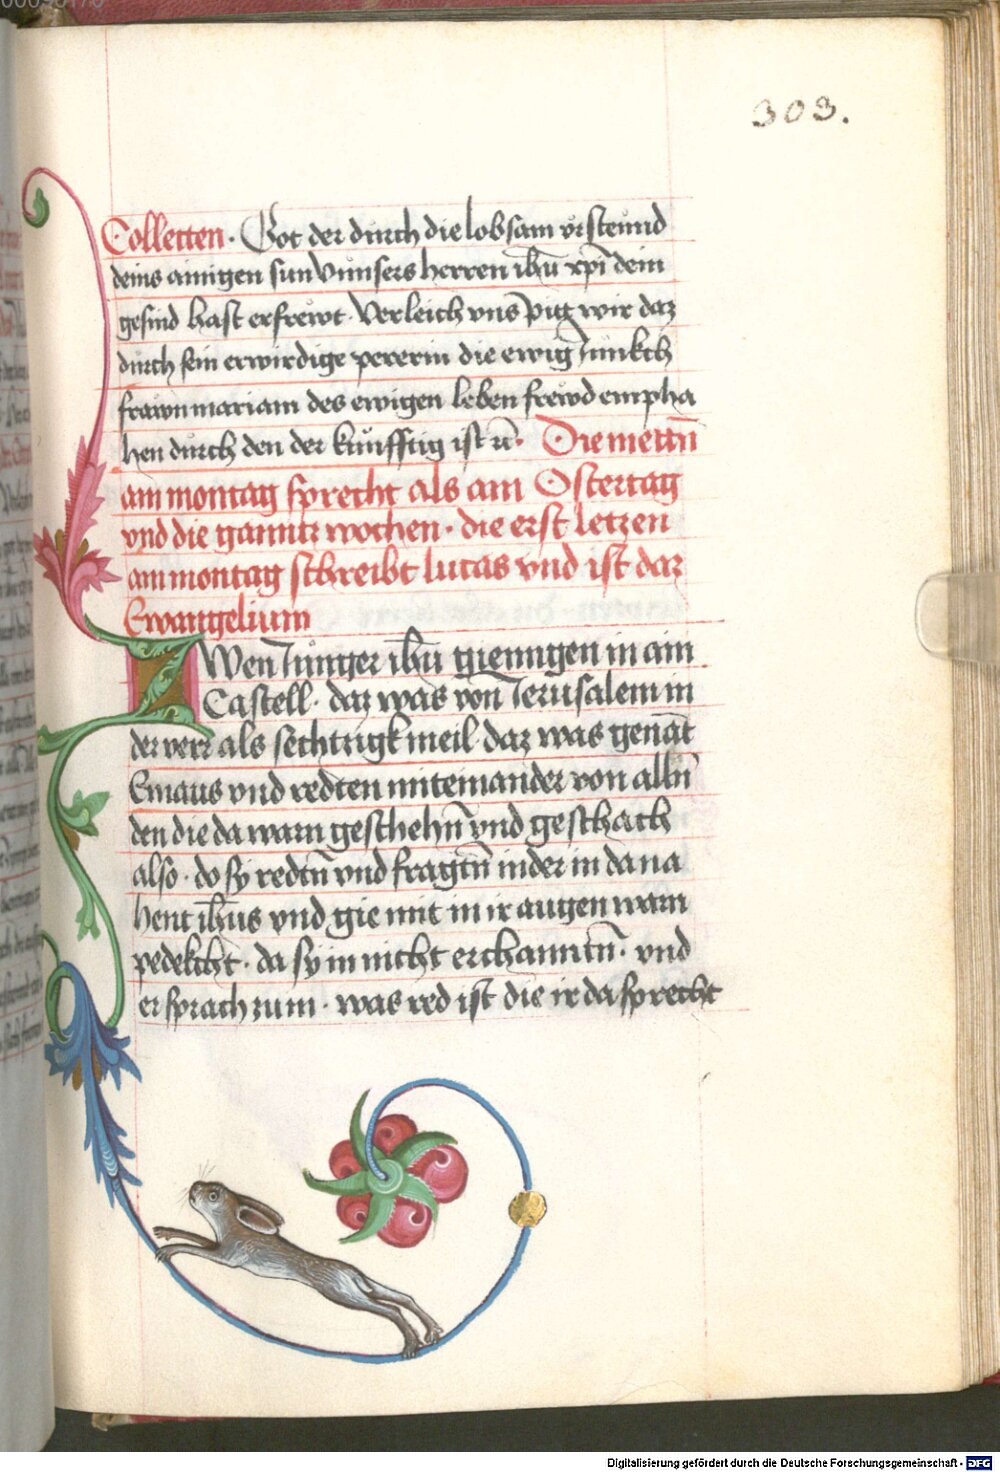 303.
Colletten · Got der durch die lobsam ursteund
deins ainigen sun vnnsers herren ihū xpī dein
gesind hast erfrewt · Verleich vns pitt wir daz
durch sein erwirdige pererin die ewig Junkch
frawn mariam des ewigen leben frewd empha
hen durch den der kunfftig ist · Die mettn̄
am montag sprecht als am Ostertag
vnd die ganntz wochen · die erst letzen
am montag schreibt lucas vnd ist daz
Ewangelium
ZWen Junger ihū giengen in ain
Castell · daz was von Jerusalem in
der verr als sechtzigk meil · daz was genāt
Emaus vnd redten miteinander von alln̄
den die da warn geschehn̄ vnd geschach
also · do sy redtn̄ vnd fragtn̄ inder in da na
hent ihūs vnd gie mit in ir augen warn
pedekcht · da sy in nicht erchanntn̄ · vnd
er sprach zum · was red ist die ir da sprecht
Digitalisierung gefördert durch die Deutsche Forschungsgemeinschaft - DFG